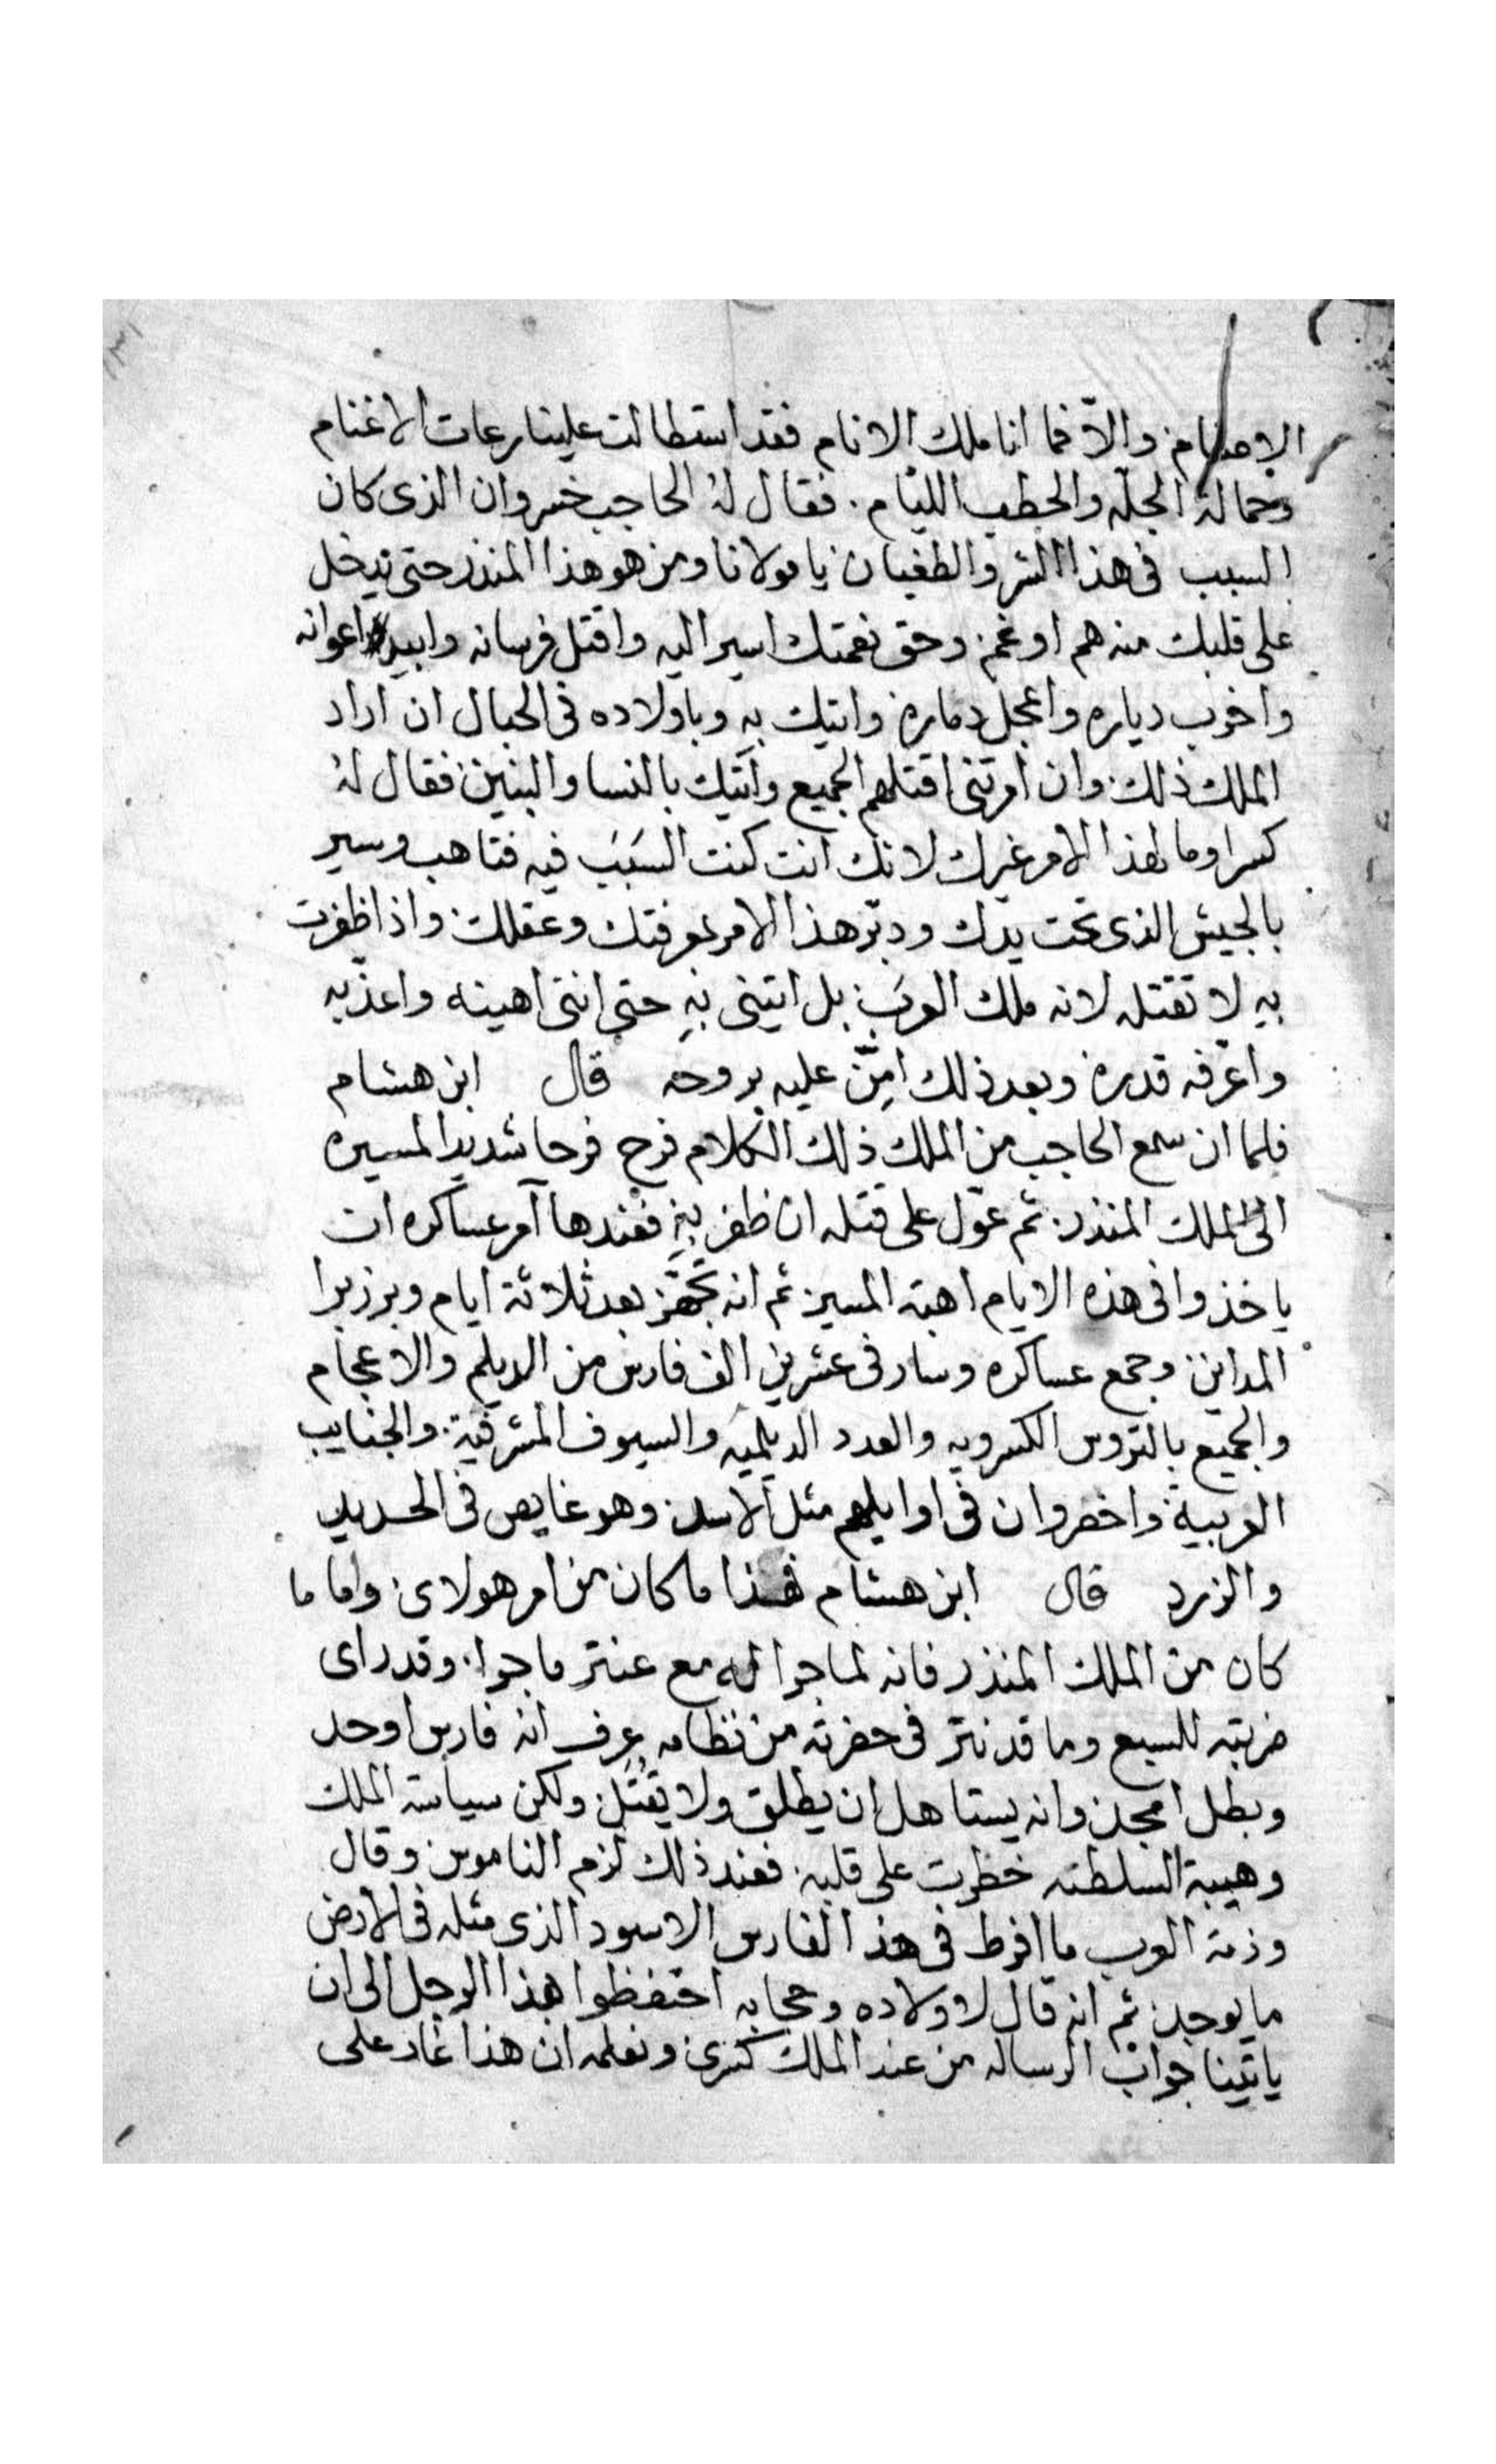 الاصنام والّا فما انا ملك الانام فقد استطالت علينا رعات الاغنام
وحمالة الجلّه والحطب الليام. فقال لهُ الحاجب خسروان الذى كان
السبب فى هذا الشر والطغيان يا مولانا ومن هو هذا المنذر حتى تدخل
على قلبك منه هم او غم وحق نعمتك اسير اليه واقتل فرسانه وابيد اعوانه
واخرب دياره واعجل دماره واتيك به وباولاده فى الحبال ان اراد
الملك ذلك وان امرتنى اقتلهم الجميع وآتيك بالنسا والبنين فقال لهُ
كسرا وما لهذا الامر غيرك لانك انت كنت السَبَبَ فيه فتاهب وسير
بالجيش الذى تحت يدك ودبّر هذا الامر بمعرفتك وعقلك واذا ظفرت
بهِ لا تقتله لانه ملك العرب بل اتينى بهِ حتى اننى اهينه واعذّبه
واعرّفه قدره وبعد ذلك امِنّ عليه بروحه قال ابن هشام
فلما ان سمع الحاجب من الملك ذلك الكلام فرح فرحا شديدا لمسيره
الى الملك المنذر ثم عوّل على قتله ان ظفر بهِ فعندها آمر عساكره ان
ياخذوا فى هذه الايام اهبة المسير ثم انه تجهّز بعد ثلاثة ايام وبرز برا
المداين وجمع عساكره وسار فى عشرين الف فارس من الديلم والاعجام
والجميع بالتروس الكسرويه والعدد الديلميه والسيوف المشرفية والجنايب
العربية واخسروان فى اوايلهم مثل الاسد وهو غايص فى الحديد
والزرد قال ابن هشام فهذا ما كان من امر هولاى واما ما
كان من الملك المنذر فانه لما جرا له مع عنتر ما جرا وقد راى
ضربته للسبع وما قد نثر فى حضرته من نظامه عرف انه فارس اوحد
وبطل امجد وانه يستاهل ان يطلق ولا يُقتَل ولكن سياسة الملك
وهيبة السلطنه خطرت على قلبه فعند ذلك لزم الناموس وقال
وذمة العرب ما افرط فى هذ الفارس الاسود الذى مثله فى الارض
ما يوجد ثم انه قال لاولاده وحجابه احتفظوا بهذا الرجل الى ان
ياتينا جواب الرساله من عند الملك كسرى ونعلمه ان هذا غار على